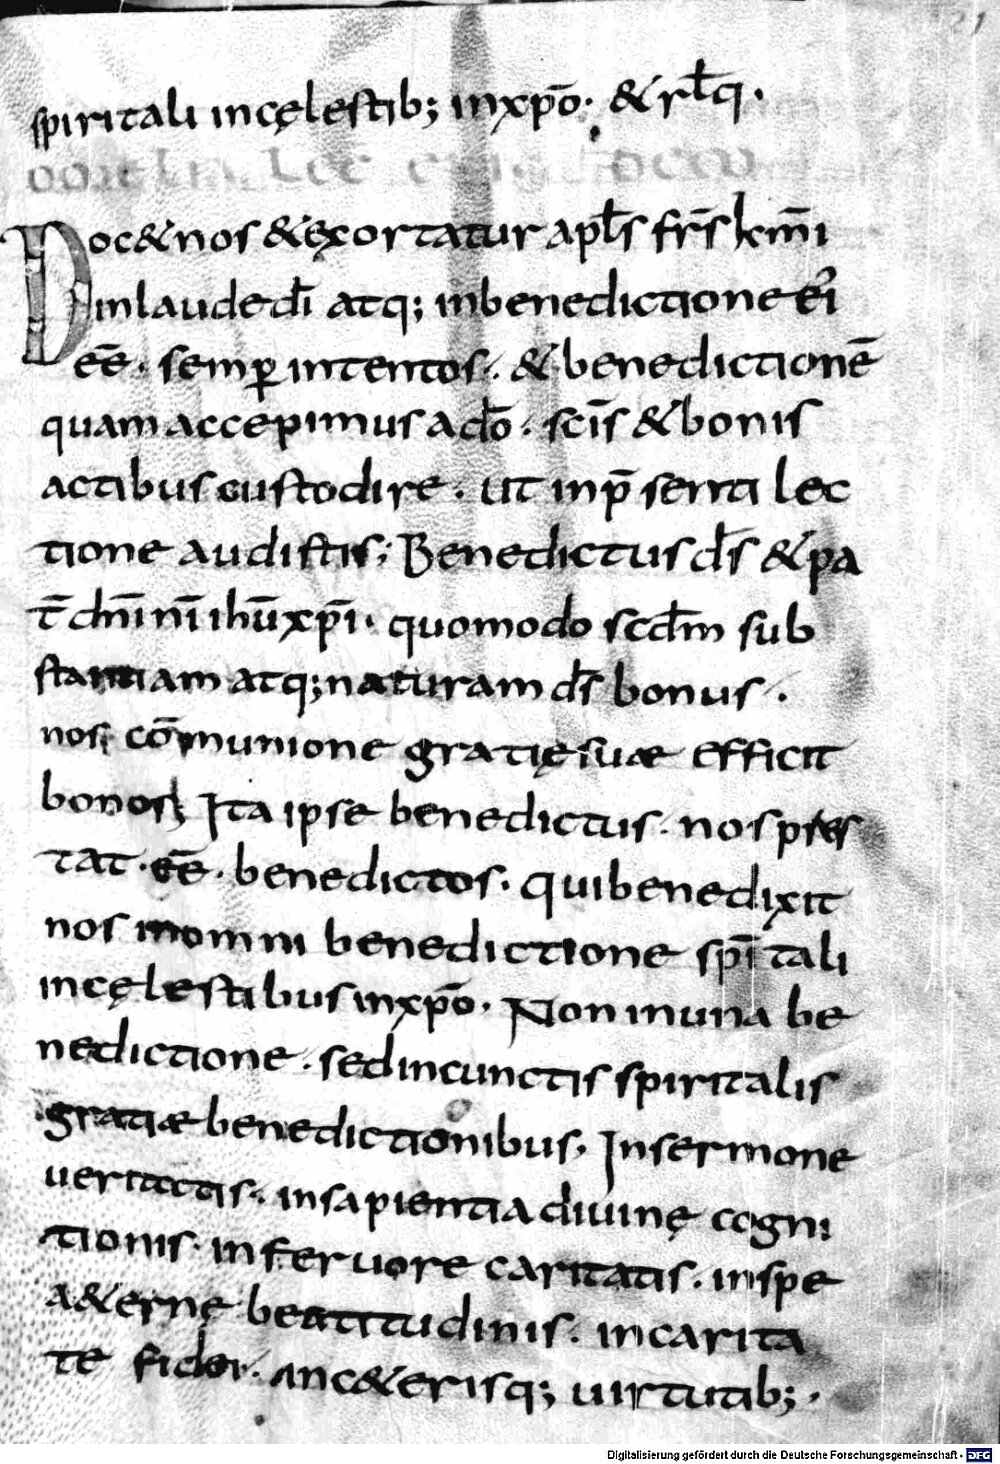 21
spiritali incęlestib; inxpō· & rłq·
Doc& nos & excortatur apłs frs kmi
inlaude dī atq; inbenedictione ei
eē· semp intentos·. & benedictionē
quam accepimus a dō· scīs & bonis
actibus custodire· ut inp̄senti lec
tione audistis; Benedictus dš & pa
t̄ dnī nī ihū xpī· quomodo scdm sub
stantiam atq; naturam dš bonus·
nos communione gratię suæ efficit
bonos; Ita ipse benedictus· nos pres
tat· eē· benedictos· qui benedixit
nos inomni benedictione spītali
incęlestibus inxpō· Non inuna be
nedictione· sed incunctis spiritalis
gratiæ benedictionibus, Insermone
ueritatis· insapientia diuinę cogni
tionis· in feruore caritatis· inspe
a&ernę beatitudinis· incarita
te fidei· inc&erisq; uirtutib;·
Digitalisierung gefördert durch die Deutsche Forschungsgemeinschaft - DFG